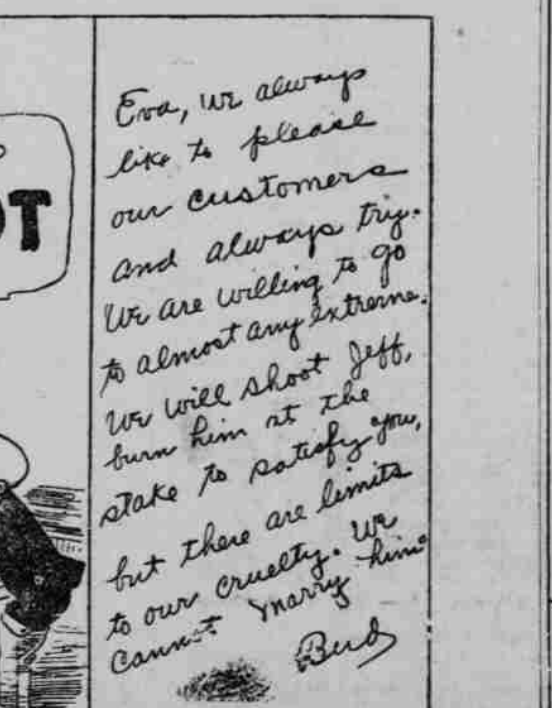 OT
Eva, we always
like to please
our customers
and always try.
We are willing to go
to almost any extreme.
We will shoot Jeff,
burn him at the
stake to satisfy you,
but there are limits
to our cruelty. We
cannot marry him.
Bud